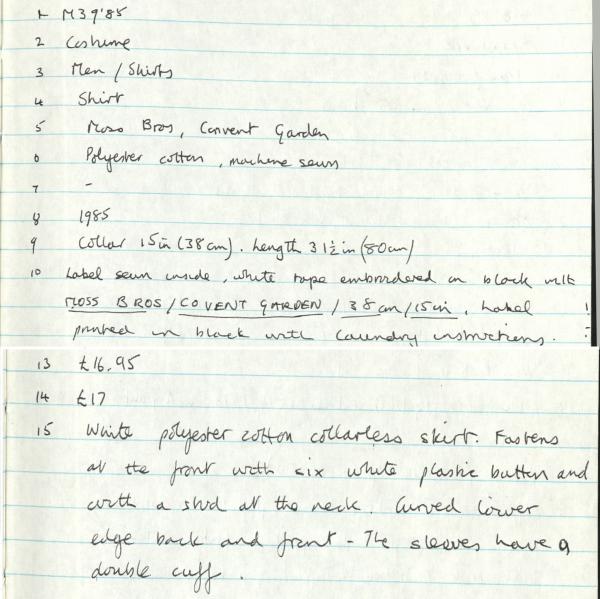 1 M39'85
2 Costume
3 Men / Shirts
4 Shirt
5 Moss Bros, Convent Garden
6 Polyester cotton, machine sewn
7 -
8 1985
9 Collar 15in (38cm). Length 31½in (80cm)
10 Label sewn inside, white tape embroidered in black with
MOSS BROS/COVENT GARDEN / 38cm/15in. Label
printed in black with laundry instructions.
13 £16.95
14 £17
15 White polyester cotton collarless skirt. Fastens
at the front with six white plastic button and
with a stud at the neck. Curved lower
edge back and front - The sleeves have a
double cuff.